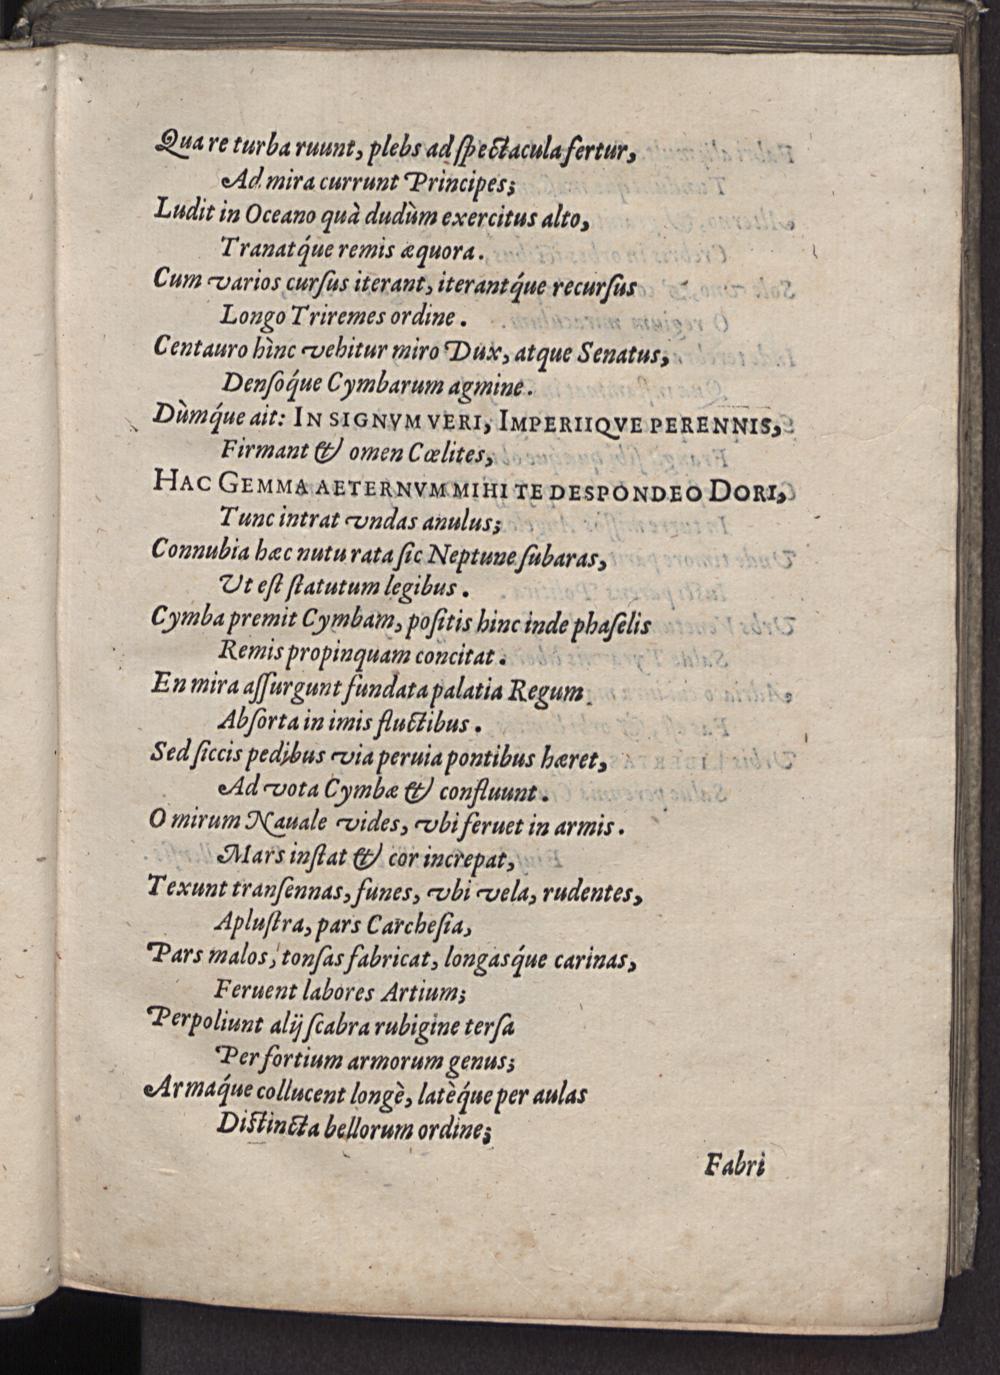 Qua re turba ruunt, plebs ad ſpectacula fertur,
Ad mira currunt Principes;
Ludit in Oceano quà dudùm exercitus alto,
Tranatq́ue remis æquora.
Cum varios curſus iterant, iterantq́ue recurſus
Longo Triremes ordine.
Centauro hìnc vehitur miro Dux, atque Senatus,
Denſoq́ue Cymbarum agmine.
Dùmq́ue ait: IN SIGNVM VERI, IMPERIIQVE PERENNIS,
Firmant & omen Cœlites,
HAC GEMMA AETERNVM MIHI TE DESPONDEO DORI,
Tunc intrat vndas anulus;
Connubia hæc nutu rata ſic Neptune ſubaras,
Ut eſt ſtatutum legibus.
Cymba premit Cymbam, poſitis hinc inde phaſelis
Remis propinquam concitat.
En mira aſſurgunt fundata palatia Regum
Abſorta in imis fluctibus.
Sed ſiccis pedibus via peruia pontibus hæret,
Ad vota Cymbæ & confluunt.
O mirum Nauale vides, vbi feruet in armis.
Mars inſtat & cor increpat,
Texunt tranſennas, funes, vbi vela, rudentes,
Apluſtra, pars Carcheſia,
Pars malos, tonſas fabricat, longasq́ue carinas,
Feruent labores Artium;
Perpoliunt alij ſcabra rubigine terſa
Per fortium armorum genus;
Armaq́ue collucent longè, latèq́ue per aulas
Diſtincta bellorum ordine;
Fabri